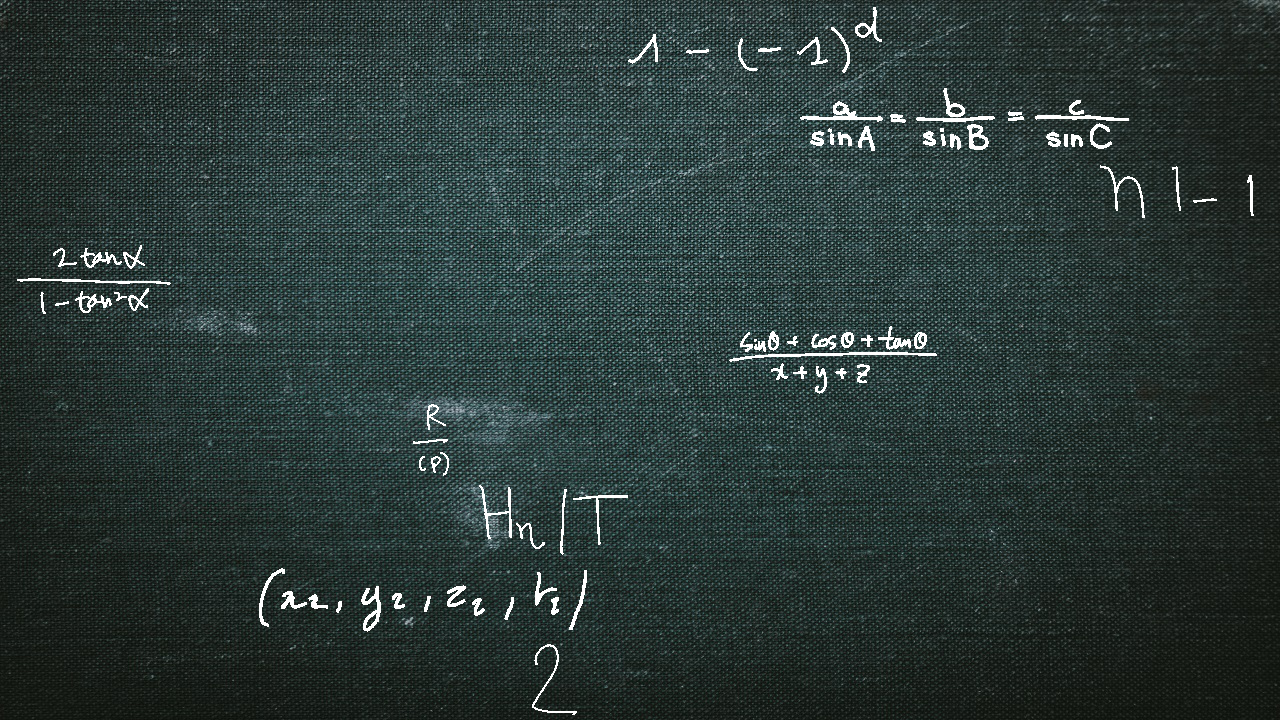 1 - (-1)^d
a/sinA = b/sinB = c/sinC
n 1 - 1
2 tanα/1 - tan²α
sinθ + cosθ + tanθ/x + y + z
R/(P)
Hn/T
(x₂, y₂, z₂, t₂)
2